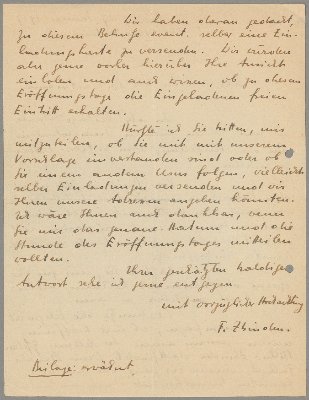 Wir haben daran gedacht,
zu diesem Behufe event. selber eine Ein-
ladungskarte zu versenden. Wir würden
aber gerne vorher hierüber Ihre Ansicht
einholen und auch wissen, ob zu diesem
Eröffnungstage die Eingeladenen freien
Eintritt erhalten.
Dürfte ich Sie bitten, uns
mitzuteilen, ob Sie mit mit unserem
Vorschlage einverstanden sind oder ob
Sie einem andern Usus folgen, vielleicht
selber Einladungen versenden und wir
Ihnen unsere Adressen angeben könnten.
Ich wäre Ihnen auch dankbar, wenn
Sie mir das genaue Datum und die
Stunde des Eröffnungstages mitteilen
wollten.
Ihrer geschätzten baldigen
Antwort sehe ich gerne entgegen.
mit vorzüglicher Hochachtung
F. Zbinden.
Beilage: erwähnt.